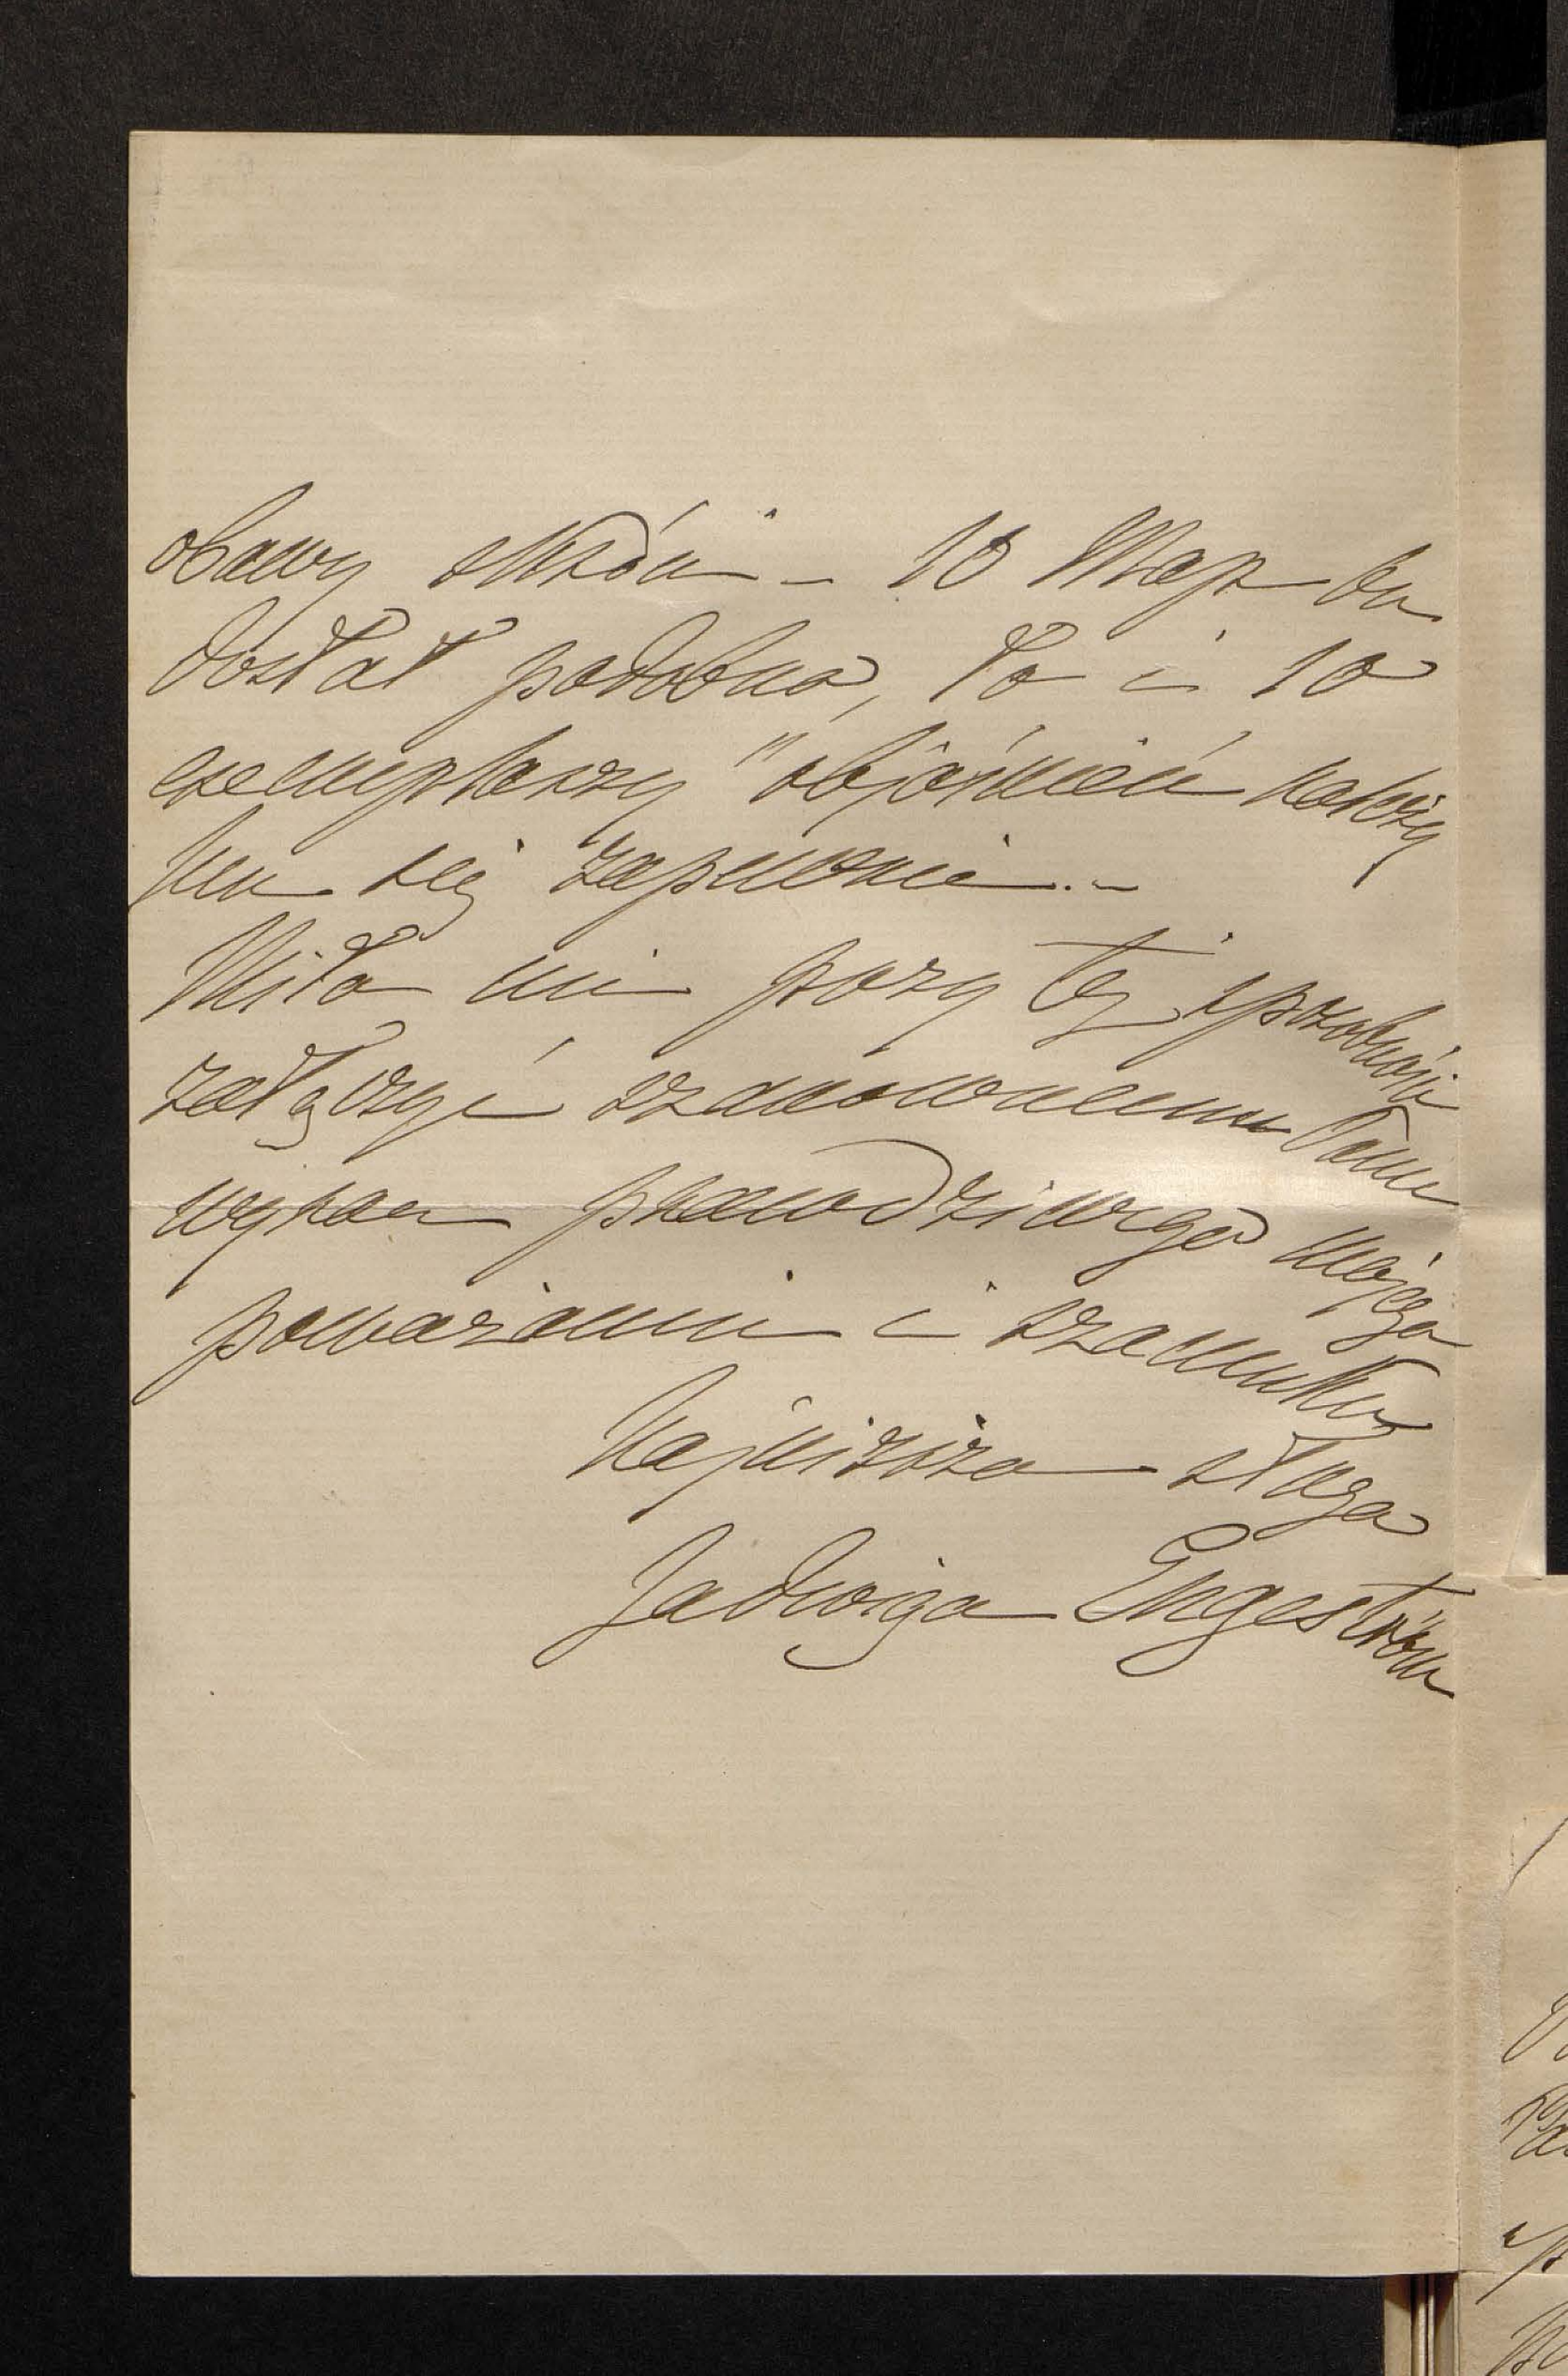 obawy skróci – 10 Map bu
dostał podobno, to i 10
exemplarzy "objaśnień należy
mu się zapewnie. –
Miło mi przy tej sposobności
załączyć szanownemu Panu
wyraz prawdziwego mojego
poważania i szacunku
Najniższa sługa
Jadwiga Engeström